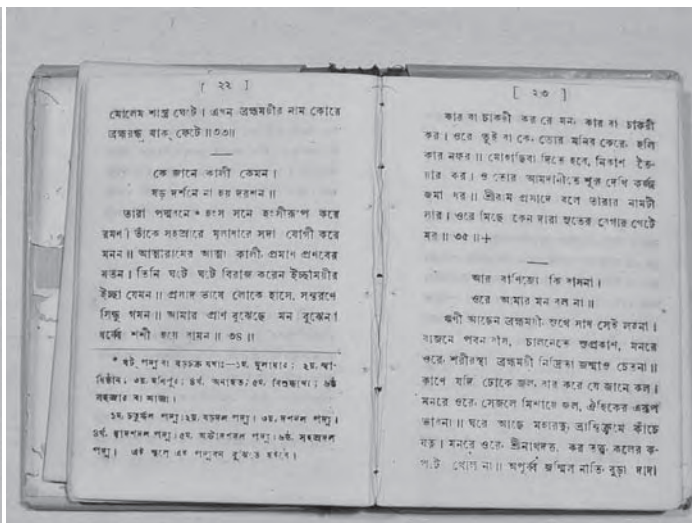 [ ২২ ]
মোলেম শাস্ত্র ঘেটে। এখন ব্রহ্মময়ীর নাম কোরে
ব্রহ্মরন্ধ্র যাক্ ফেটে ॥৩৩॥
কে জানে কালী কেমন।
ষড় দর্শনে না হয় দরশন॥
তারা পদ্মবনে * হংস সনে হংসীরূপ করে
রমণ। তাঁকে সহস্রারে মূলাধারে সদা যোগী করে
মনন॥ আত্মারামের আত্মা কালী, প্রমাণ প্রণবের
মতন। তিনি ঘটে ঘটে বিরাজ করেন ইচ্ছাময়ীর
ইচ্ছা যেমন॥ প্রসাদ ভাষে লোকে হাসে, সন্তরণে
সিন্ধু গমন॥ আমার প্রাণ বুঝেছে মন বুঝেনা
ধর্ব্বে শশী হয়ে বামন॥ ৩৪॥
* ষট্ পদ্ম বা ষড়চক্র যথাঃ—১ম, মূলাধার; ২য়, স্বা-
ধিষ্ঠান; ৩য়, মণিপূর; ৪র্থ, অনাহত; ৫ম, বিশুদ্ধাখ্য; ৬ষ্ঠ
সহস্রার বা আজ্ঞা।
১ম, চতুর্দ্দল পদ্ম; ২য়, ষড়দল পদ্ম। ৩য়, দশদল পদ্ম।
৪র্থ, দ্বাদশদল পদ্ম; ৫ম, ষষ্টাদশদল পদ্ম; ৬ষ্ঠ, সহস্রদল
পদ্ম। এই স্থলে এই পদ্মবন বুঝিতে হইবে।
[ ২৩ ]
কার বা চাকরী কর রে মন, কার বা চাকরী
কর। ওরে তুই বা কে, তোর মনিব কেরে, হলি
কার নফর॥ মোহাছিবা দিতে হবে, নিকাশ তৈ-
য়ার কর। ও তোর আমদানীতে শূন্য দেখি কর্জ্জ
জমা ধর॥ শ্রীরাম প্রসাদে বলে তারার নামটী
সার। ওরে মিছে কেন দারা সুতের বেগার খেটে
মর॥ ৩৫॥+
আর বাণিজ্যে কি বাসনা।
ওরে আমার মন বল না॥
ঋণী আছেন ব্রহ্মময়ী, সুখে সাধ সেই লহনা।
ব্যজনে পবন বাস, চালনেতে সুপ্রকাশ, মনরে
ওরে, শরীরস্থা ব্রহ্মময়ী নিদ্রিতা জন্মাও চেতনা॥
কাণে যদি ঢোকে জল, বার করে যে জানে কল।
মনরে ওরে, সেজলে মিশায়ে জল, ঐহিকের এরূপ
ভাবনা॥ ঘরে আছে মহারত্ন, ভ্রান্তিক্রমে কাঁচে
যত্ন। মনরে ওরে, শ্রীনাথদত্ত, কর তত্ত্ব, কলের ক-
পাট খোল না॥ অপূর্ব্ব জন্মিল নাতি, বুড়া দাদা